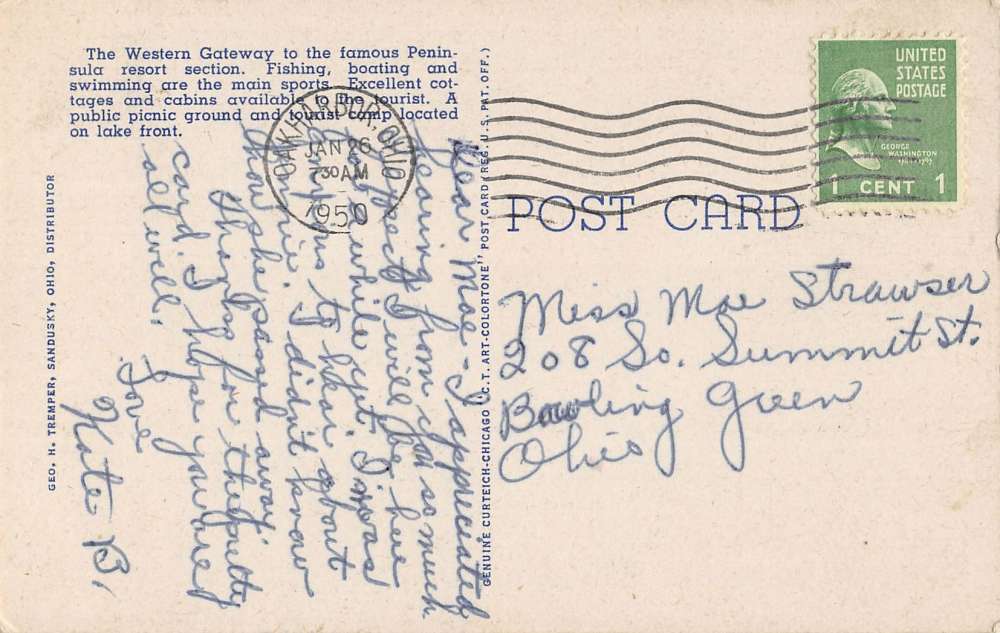 The Western Gateway to the famous Penin-
sula resort section. Fishing, boating and
swimming are the main sports. Excellent cot-
tages and cabins available to the tourist. A
public picnic ground and tourist camp located
on lake front.
GEO. H. TREMPER, SANDUSKY, OHIO, DISTRIBUTOR
GENUINE CURTEICH-CHICAGO "C.T. ART-COLORTONE" POST CARD (REG. U.S. PAT. OFF.)
OAK HARBOR, OHIO
JAN 26
7 30 AM
1950
UNITED
STATES
POSTAGE
GEORGE
WASHINGTON
1789-1797
1 CENT 1
POST CARD
Dear Mae - I appreciated
hearing from you so much
I expect I will be here
for a while yet. I was
sorry to hear about
Annie. I didn't know
that she passed away.
Thanks for the pretty
card. I hope you are
all well.
Love
Kate B.
Miss Mae Strawser
208 So. Summit St.
Bowling Green
Ohio